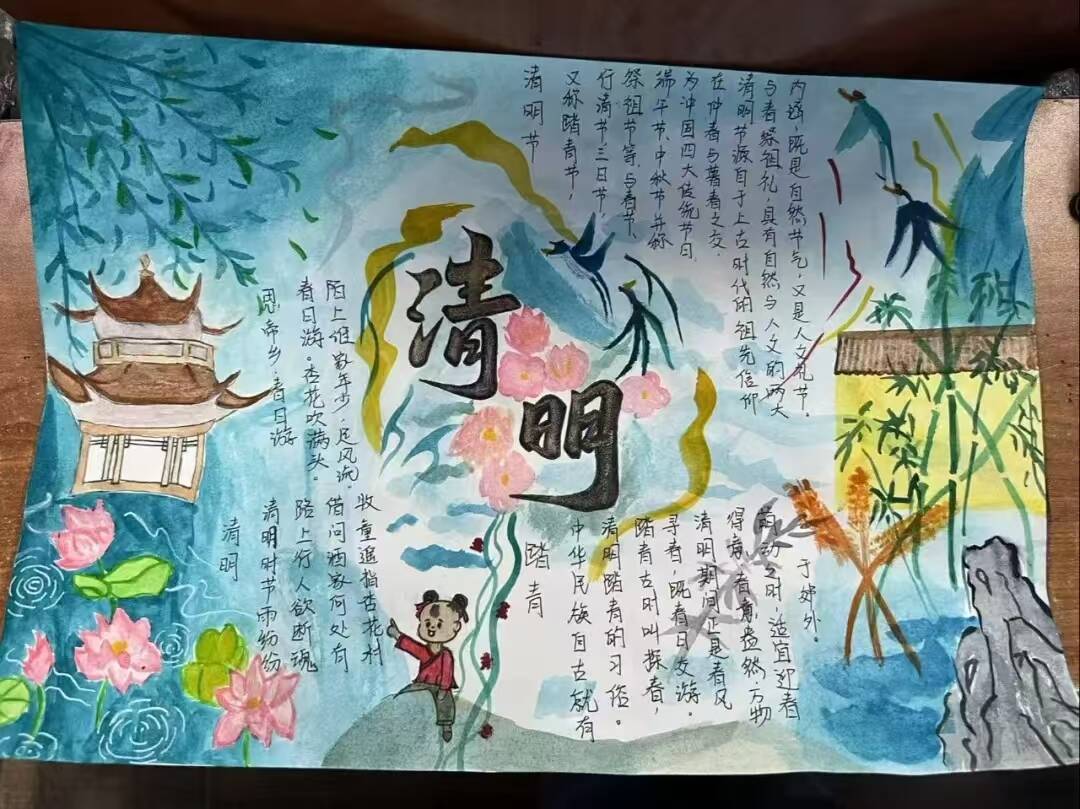 清明
清明节
又称踏青节，
行清节、三日节，
祭祖节等，与春节、
端午节、中秋节并称
为冲国四大传统节日，
在仲春与暮春之交.
清明节源自于上古时代的祖先信仰
与春祭祖礼，具有自然与人文的两大
内涵，既是自然节气，又是人文礼节。
思帝乡·春日游
春日游。杏花吹满头。
陌上谁家年少，足风流。
清明
清明时节雨纷纷
路上行人欲断魂
借问酒家何处有
牧童遥指杏花村
踏青
中华民族自古就有
清明踏青的习俗。
踏青古时叫探春，
寻春，既春日交游。
清明期间正是春风
得意，春意盎然，万物
萌动之时，适宜迎春
于郊外。